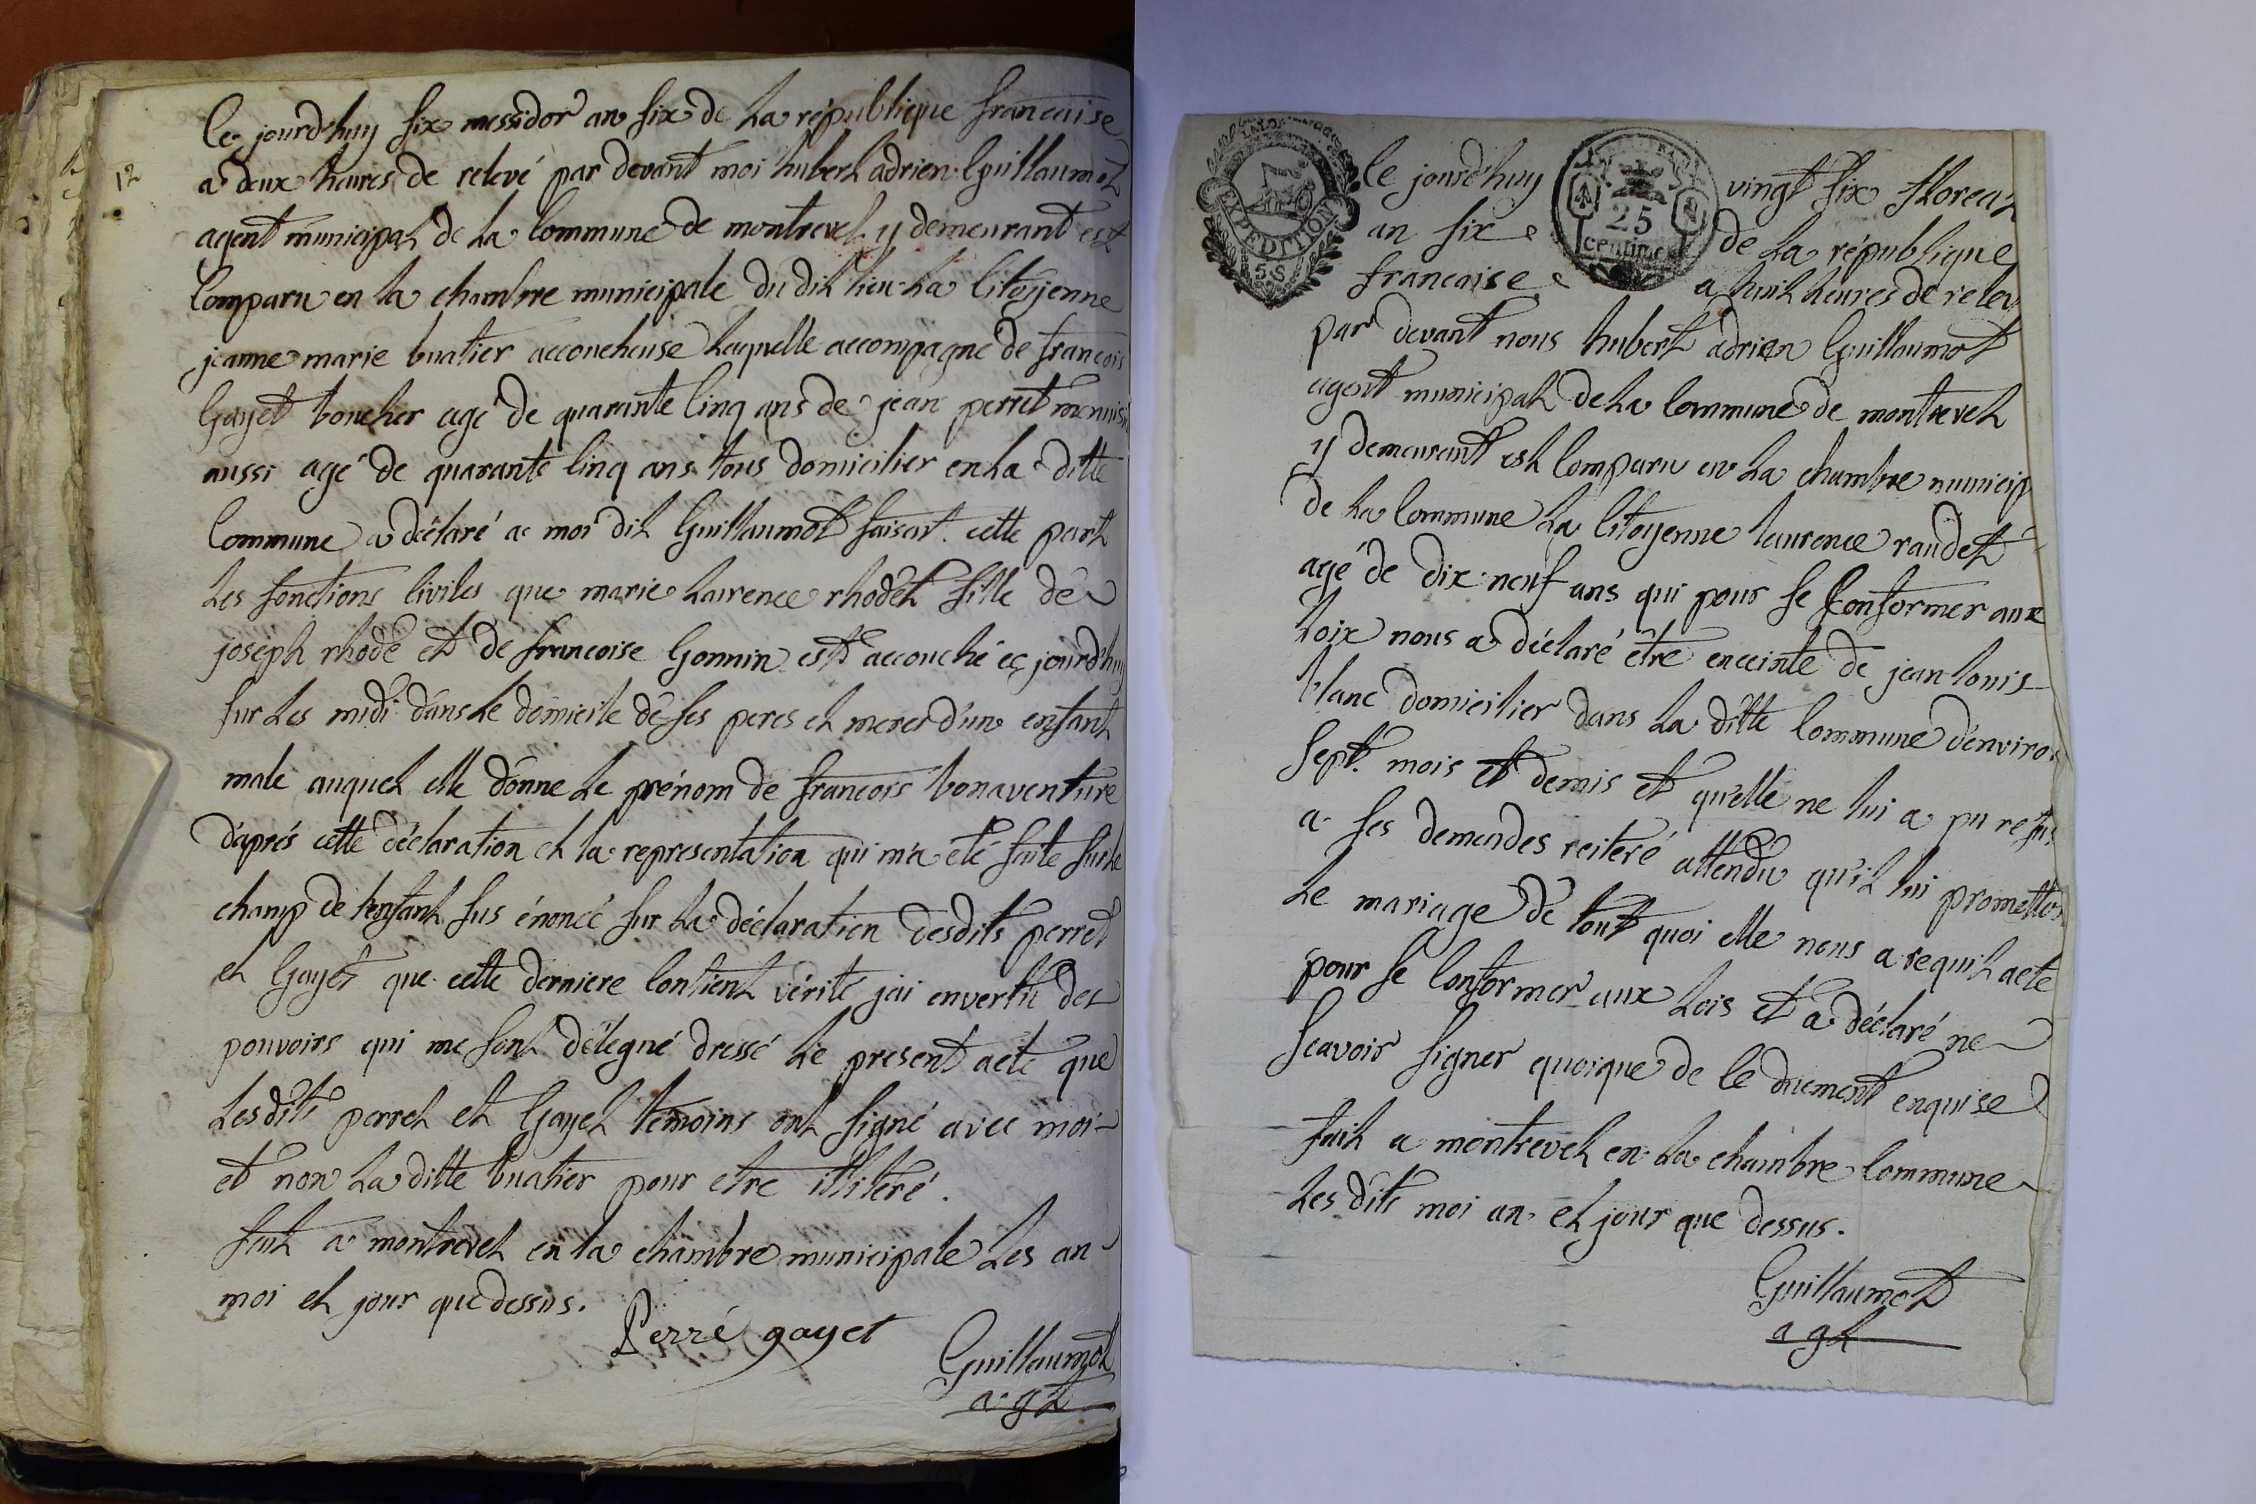 12
Ce jourd'huy six messidor an six de la république francaise
a deux heures de relevé par devant moi hubert adrien Guillaumot
agent municipal de la Commune de montrevel y demeurant est
Comparu en la chambre municipale du dit lieu la Citoyenne
jeanne marie buatier accoucheuse laquelle accompagné de francois
Gayet boucher agé de quarante Cinq ans de jean perret menuisi
aussi agé de quarante Cinq ans tous domicilier en la ditte
Commune a déclaré a moi dit Guillaumot faisant cette part
les fonctions Civiles que marie laurence rhodet fille de
joseph rhodé et de francoise Gonnin est accouché ce jourd'huy
sur les midi dans le domicile de ses peres et meres d'un enfant
male auquel elle donne le prénom de francois bonaventure
d'aprés cette déclaration et la representation qui m'a été faite sur le
champ de l'enfant sus énoncé sur la déclaration desdits perret
et Gayet que cette derniere Contient vérité j'ai en vertu des
pouvoirs qui me sont délegué dressé le present acte que
lesdits perret et Gayet témoins ont signé avec moi
et non la ditte buatier pour etre illiteré.
fait a montrevel en la chambre municipale les an
moi et jour que dessus.
Perré gayet
Guillaumot
agt
EXPEDITION
5 S
25
centimes
Ce jourd'huy vingt six floreal
an six de la république
francaise a huit heures de relev
par devant nous hubert adrien Guillaumot
agent municipal de la Commune de montrevel
y demeurant est Comparu en la chambre municip
de la Commune la Citoyenne laurence raudet
agé de dix neuf ans qui pour se Conformer aux
loix nous a déclaré être enceinte de jean louis
blanc domicilier dans la ditte Commune d'enviro
sept mois et demis et qu'elle ne lui a pu refus
a ses demandes reiteré attendu qu'il lui promettoi
le mariage de tout quoi elle nous a requit acte
pour se Conformer aux lois et a déclaré ne
scavoir signer quoique de ce duement enquise
fait a montrevel en la chambre Commune
les dits moi an et jour que dessus.
Guillaumot
agt